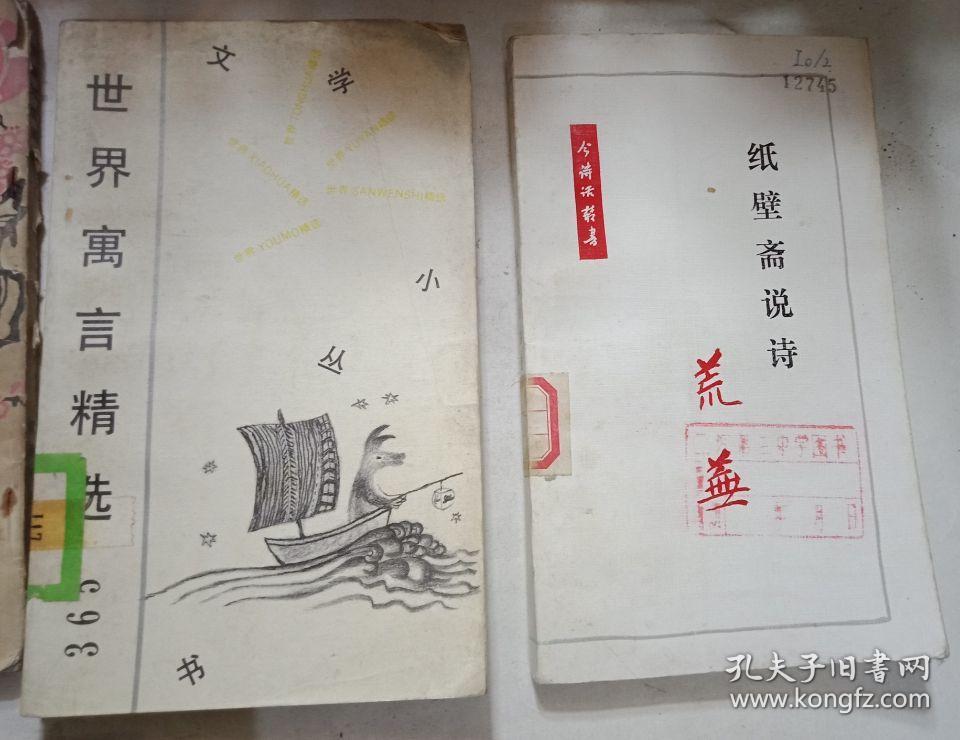 世界寓言精选
365
文学小丛书
世界TONGHUA精选
世界YUYAN精选
世界XIAOHUA精选
世界SANWENSHI精选
世界YOUMO精选
117
I0/2
12745
今诗话丛书
纸壁斋说诗
荒芜
第二中学图书
年月日
孔夫子旧书网
www.kongfz.com